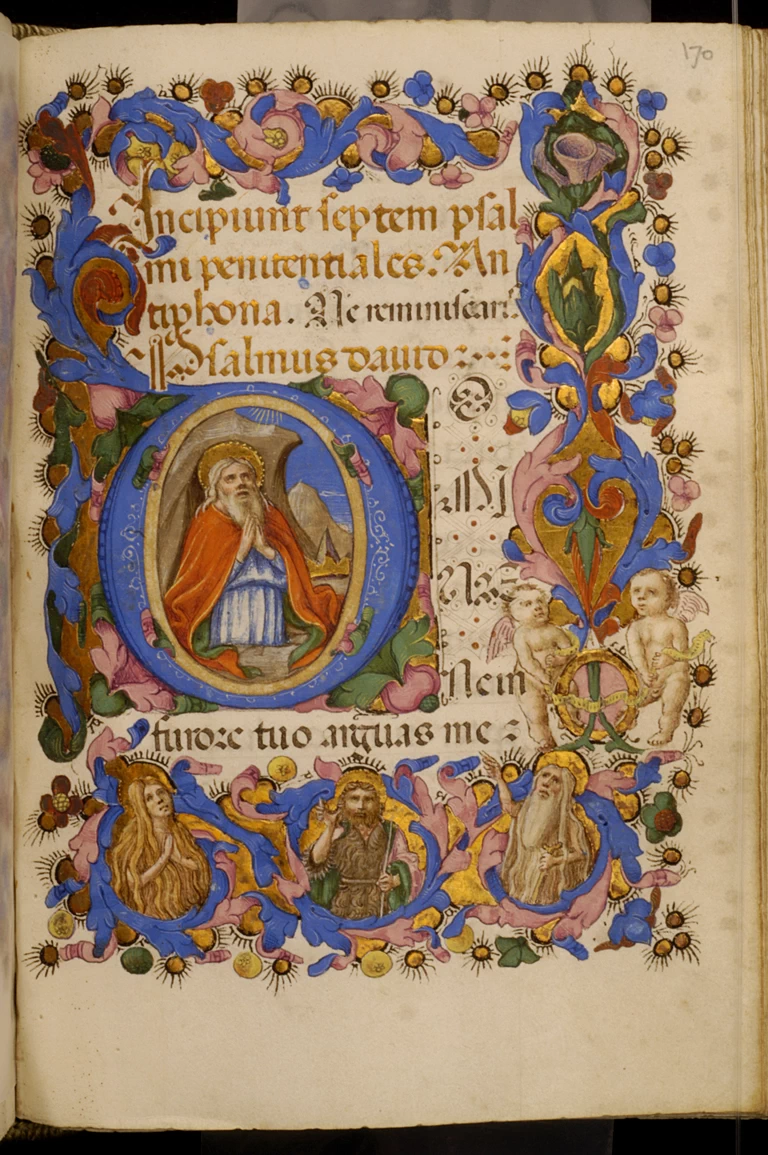 170
Incipiunt septem psal
mi penitentiales. An
tiphona. Ne reminiscaris.
Psalmus david
D
O
MI
NE
Ne in
furore tuo arguas me :